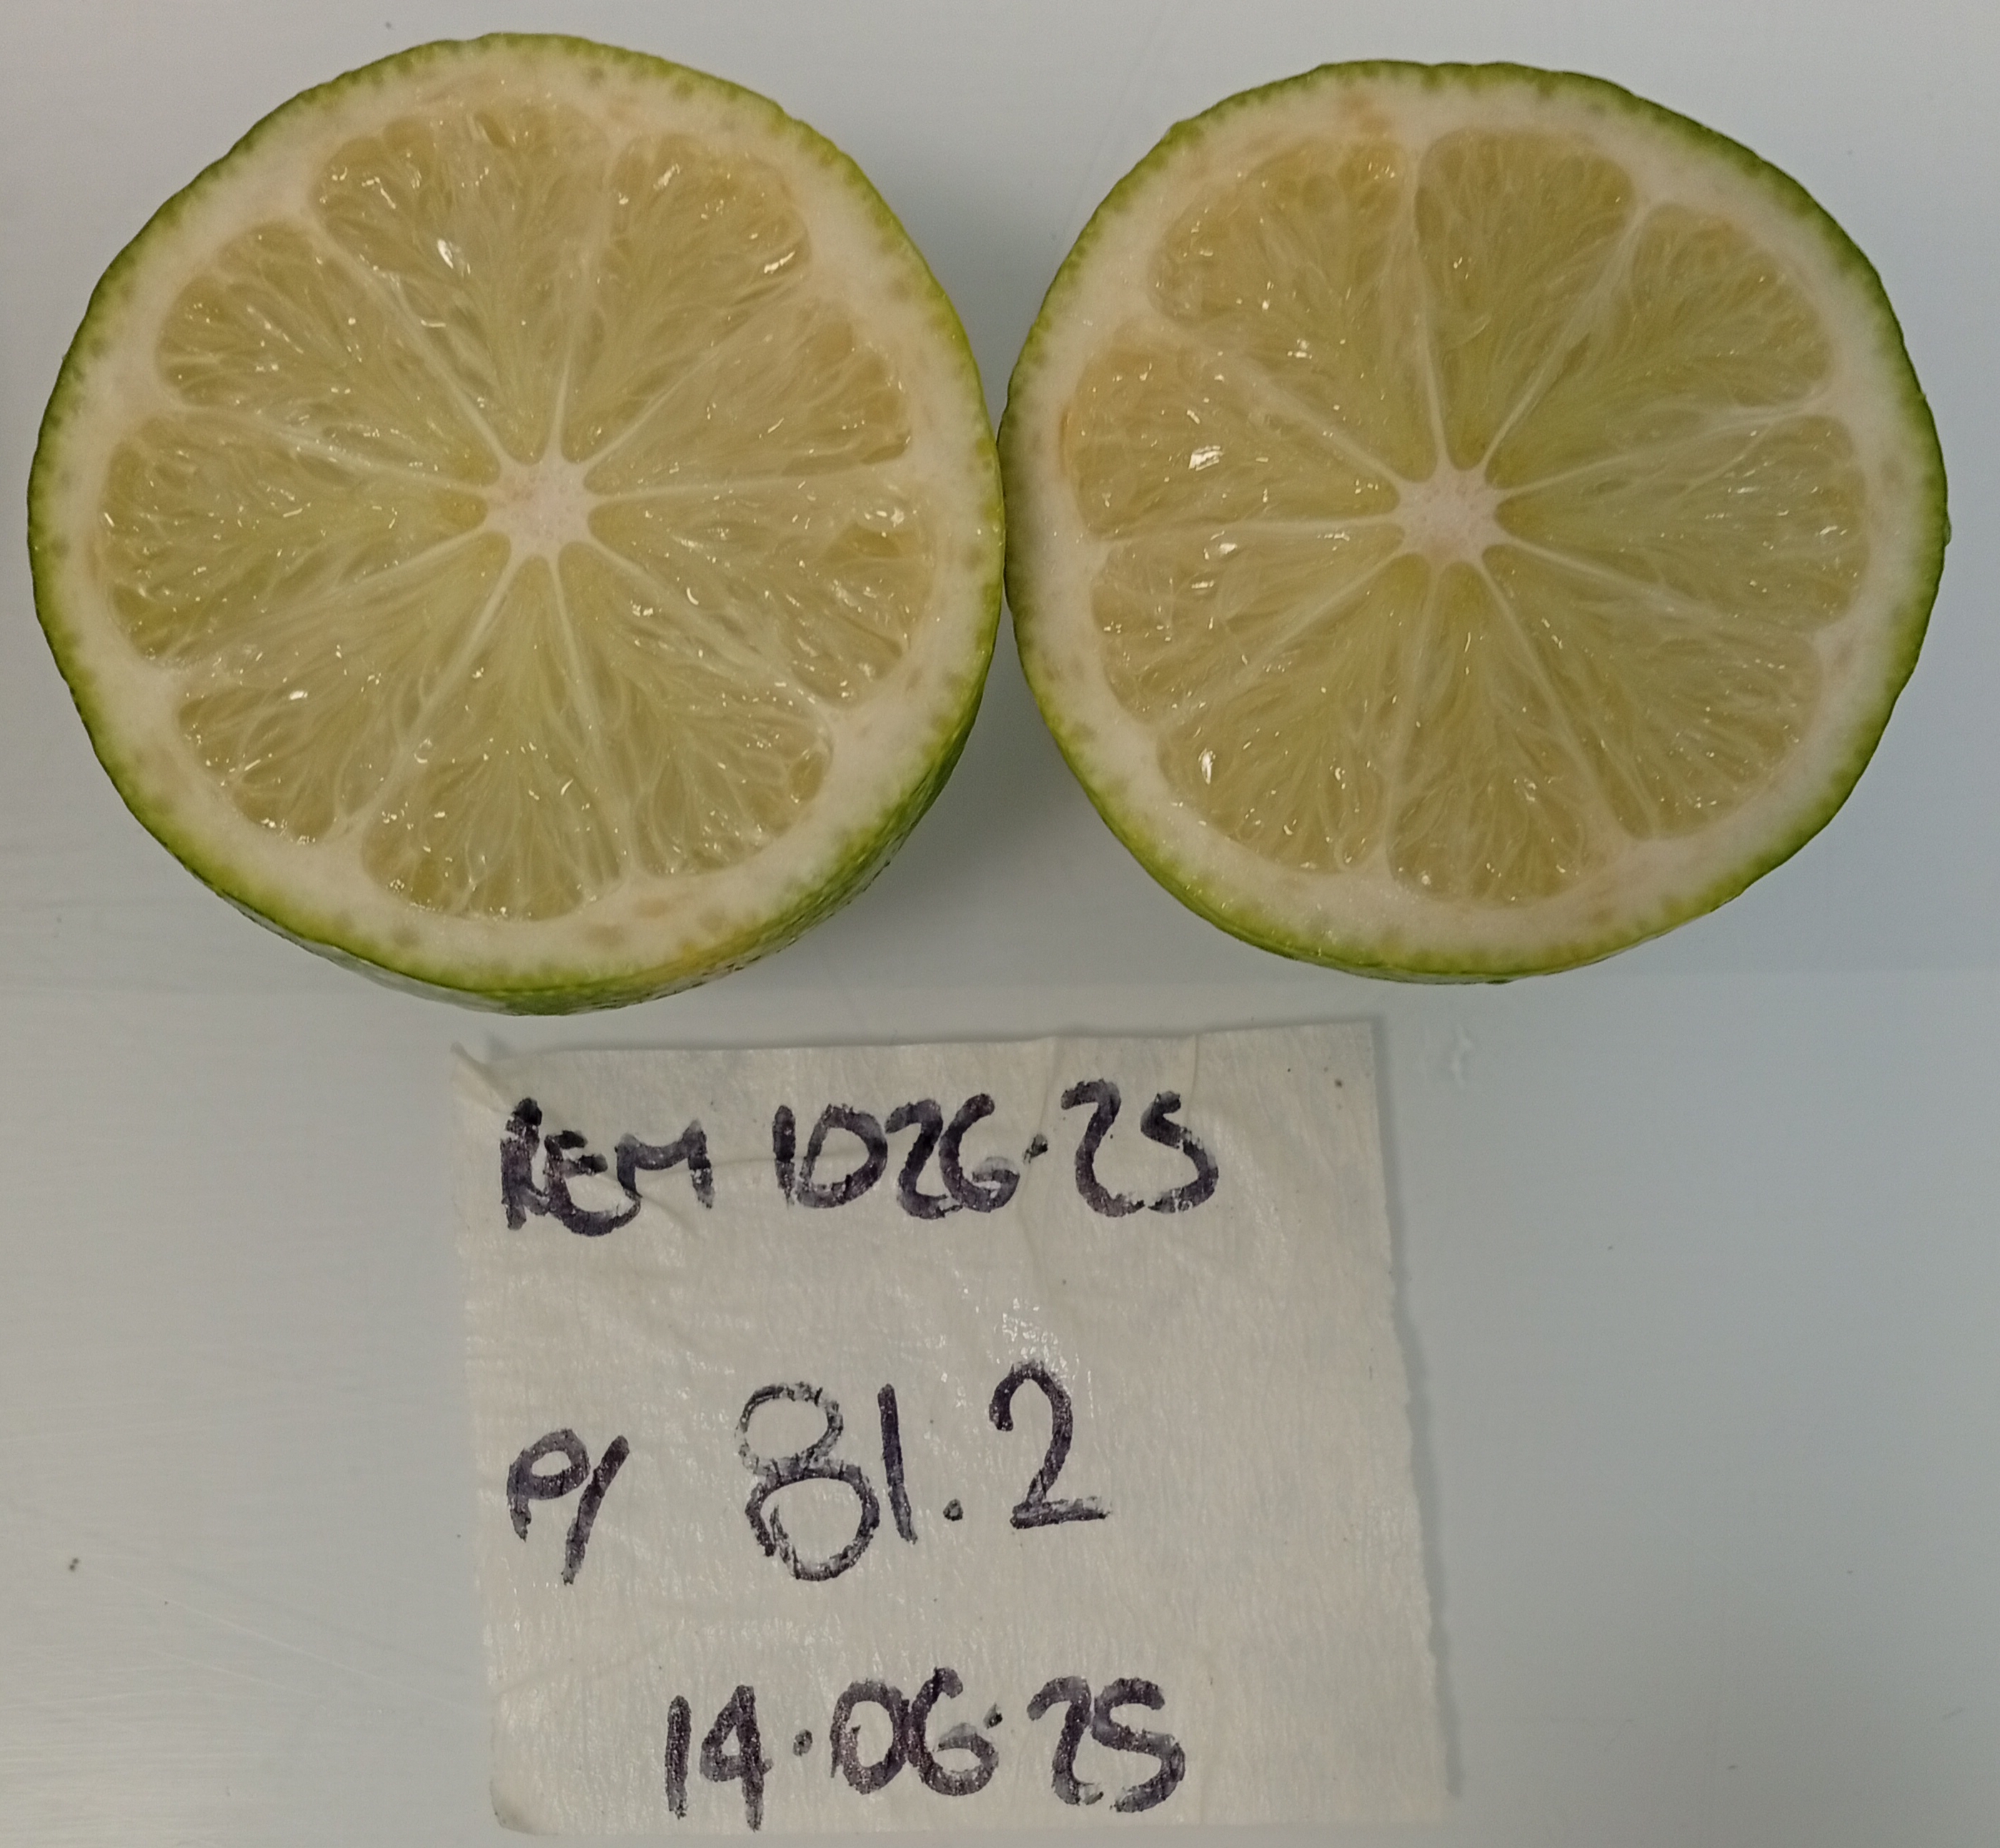 REM 1026.25
P/ 81.2
14.06.25